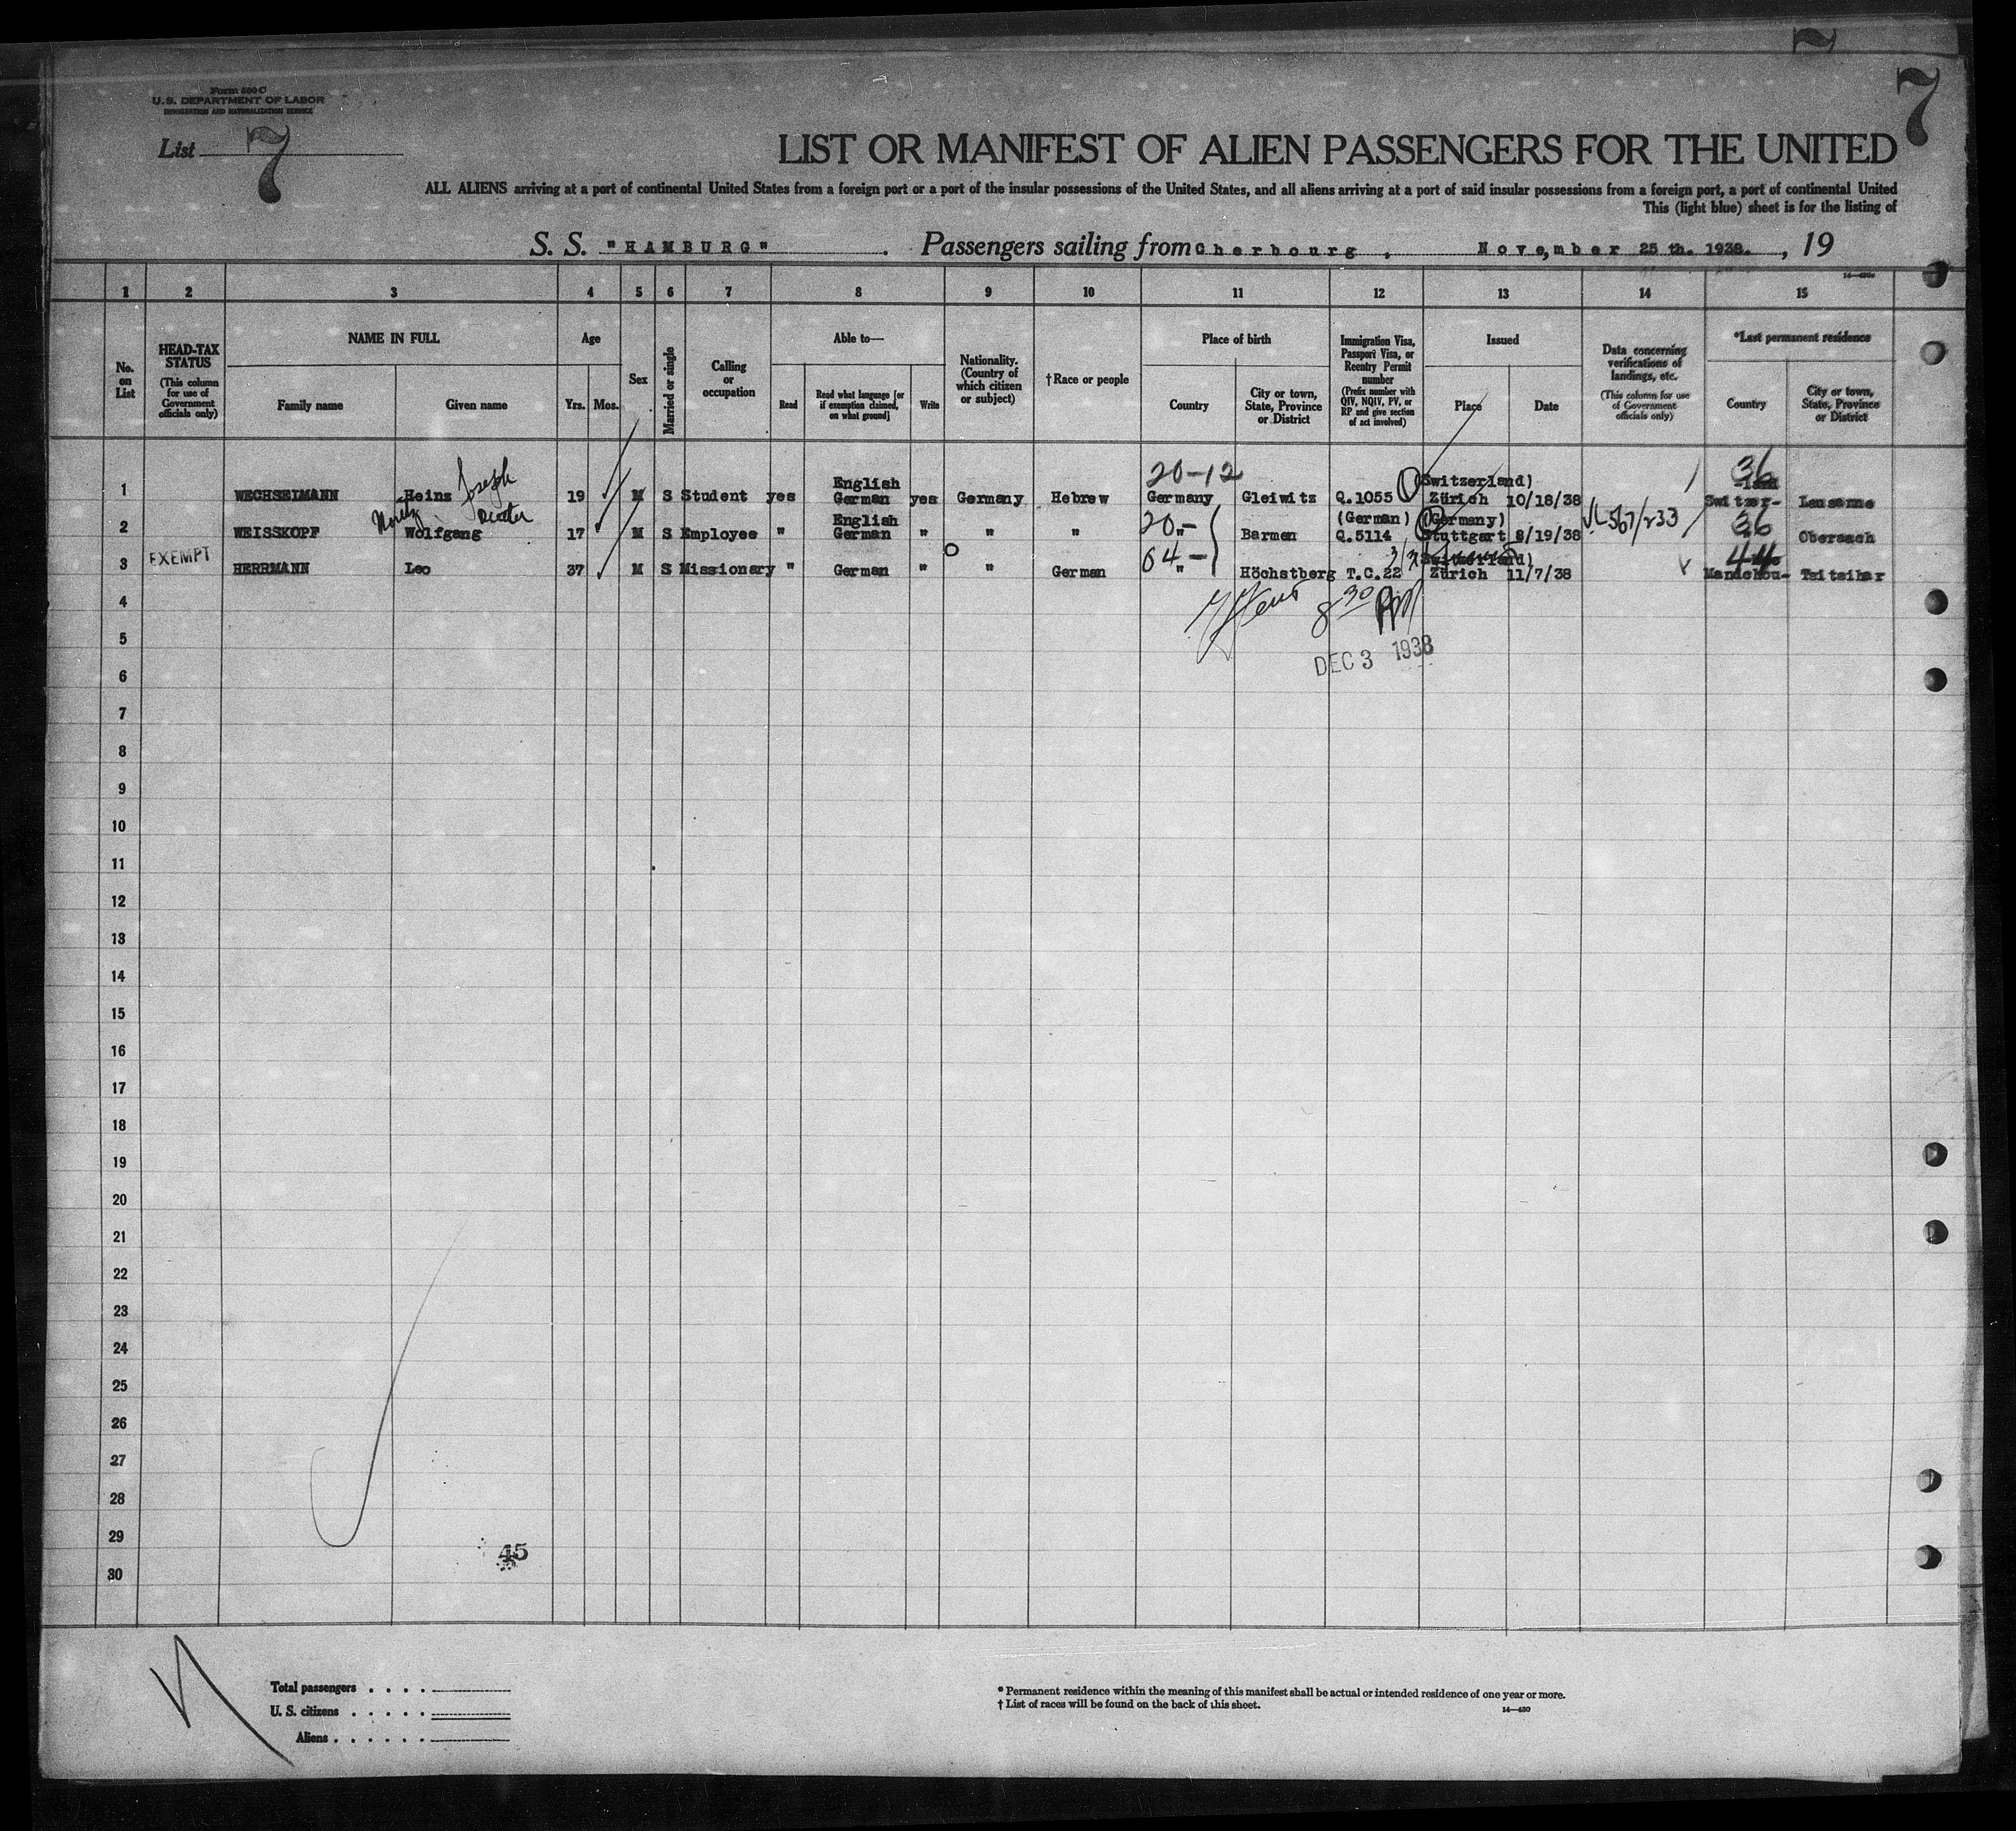 7
7
Form 500 C
U. S. DEPARTMENT OF LABOR
IMMIGRATION AND NATURALIZATION SERVICE
List 7
LIST OR MANIFEST OF ALIEN PASSENGERS FOR THE UNITED
ALL ALIENS arriving at a port of continental United States from a foreign port or a port of the insular possessions of the United States, and all aliens arriving at a port of said insular possessions from a foreign port, a port of continental United
This (light blue) sheet is for the listing of
S. S. "HAMBURG". Passengers sailing from Cherbourg, Nove,mber 25 th. 1938., 19
1 2 3 4 5 6 7 8 9 10 11 12 13 14 15
No. on List
HEAD-TAX STATUS
(This column for use of Government officials only)
NAME IN FULL
Family name Given name
Age
Yrs. Mos.
Sex
Married or single
Calling or occupation
Able to—
Read
Read what language [or if exemption claimed, on what ground]
Write
Nationality. (Country of which citizen or subject)
†Race or people
Place of birth
Country
City or town, State, Province or District
Immigration Visa, Passport Visa, or Reentry Permit number
(Prefix number with QIV, NQIV, PV, or RP and give section of act involved)
Issued
Place Date
Data concerning verifications of landings, etc.
(This column for use of Government officials only)
*Last permanent residence
Country
City or town, State, Province or District
Joseph 20-12 36
English Switzerland) -land
1 WECHSELMANN Heinz 19 M S Student yes German yes Germany Hebrew Germany Gleiwitz Q.1055 Zürich 10/18/38 Switzer- Lausanne
Moritz Dieter English 20- (German) (Germany) VL 567/233 36
2 WEISSKOPF Wolfgang 17 M S Employee " German " " " " Barmen Q.5114 Stuttgart 8/19/38 Obersach
EXEMPT 64- Switzerland) 44
3 HERRMANN Leo 37 M S Missionary " German " " German " Höchstberg T.C.22 Zürich 11/7/38 Mandchou- Tsitsihar
4
8 30 PM
5
DEC 3 1938
6
7
8
9
10
11
12
13
14
15
16
17
18
19
20
21
22
23
24
25
26
27
28
29
45
30
Total passengers . . . .
U. S. citizens . . . . .
Aliens . . . . . .
* Permanent residence within the meaning of this manifest shall be actual or intended residence of one year or more.
† List of races will be found on the back of this sheet.
14—430